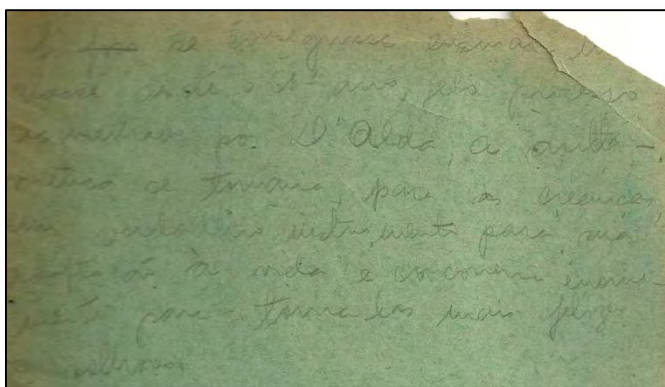 se conseguisse ensinar
classe até o 4º ano, pelo processo
ministrado por D'Alda, a arith-
metica se tornaria, para as creanças
um verdadeiro instrumento para sua
adaptação à vida e concorreria enorme-
mente para torna-las mais felizes